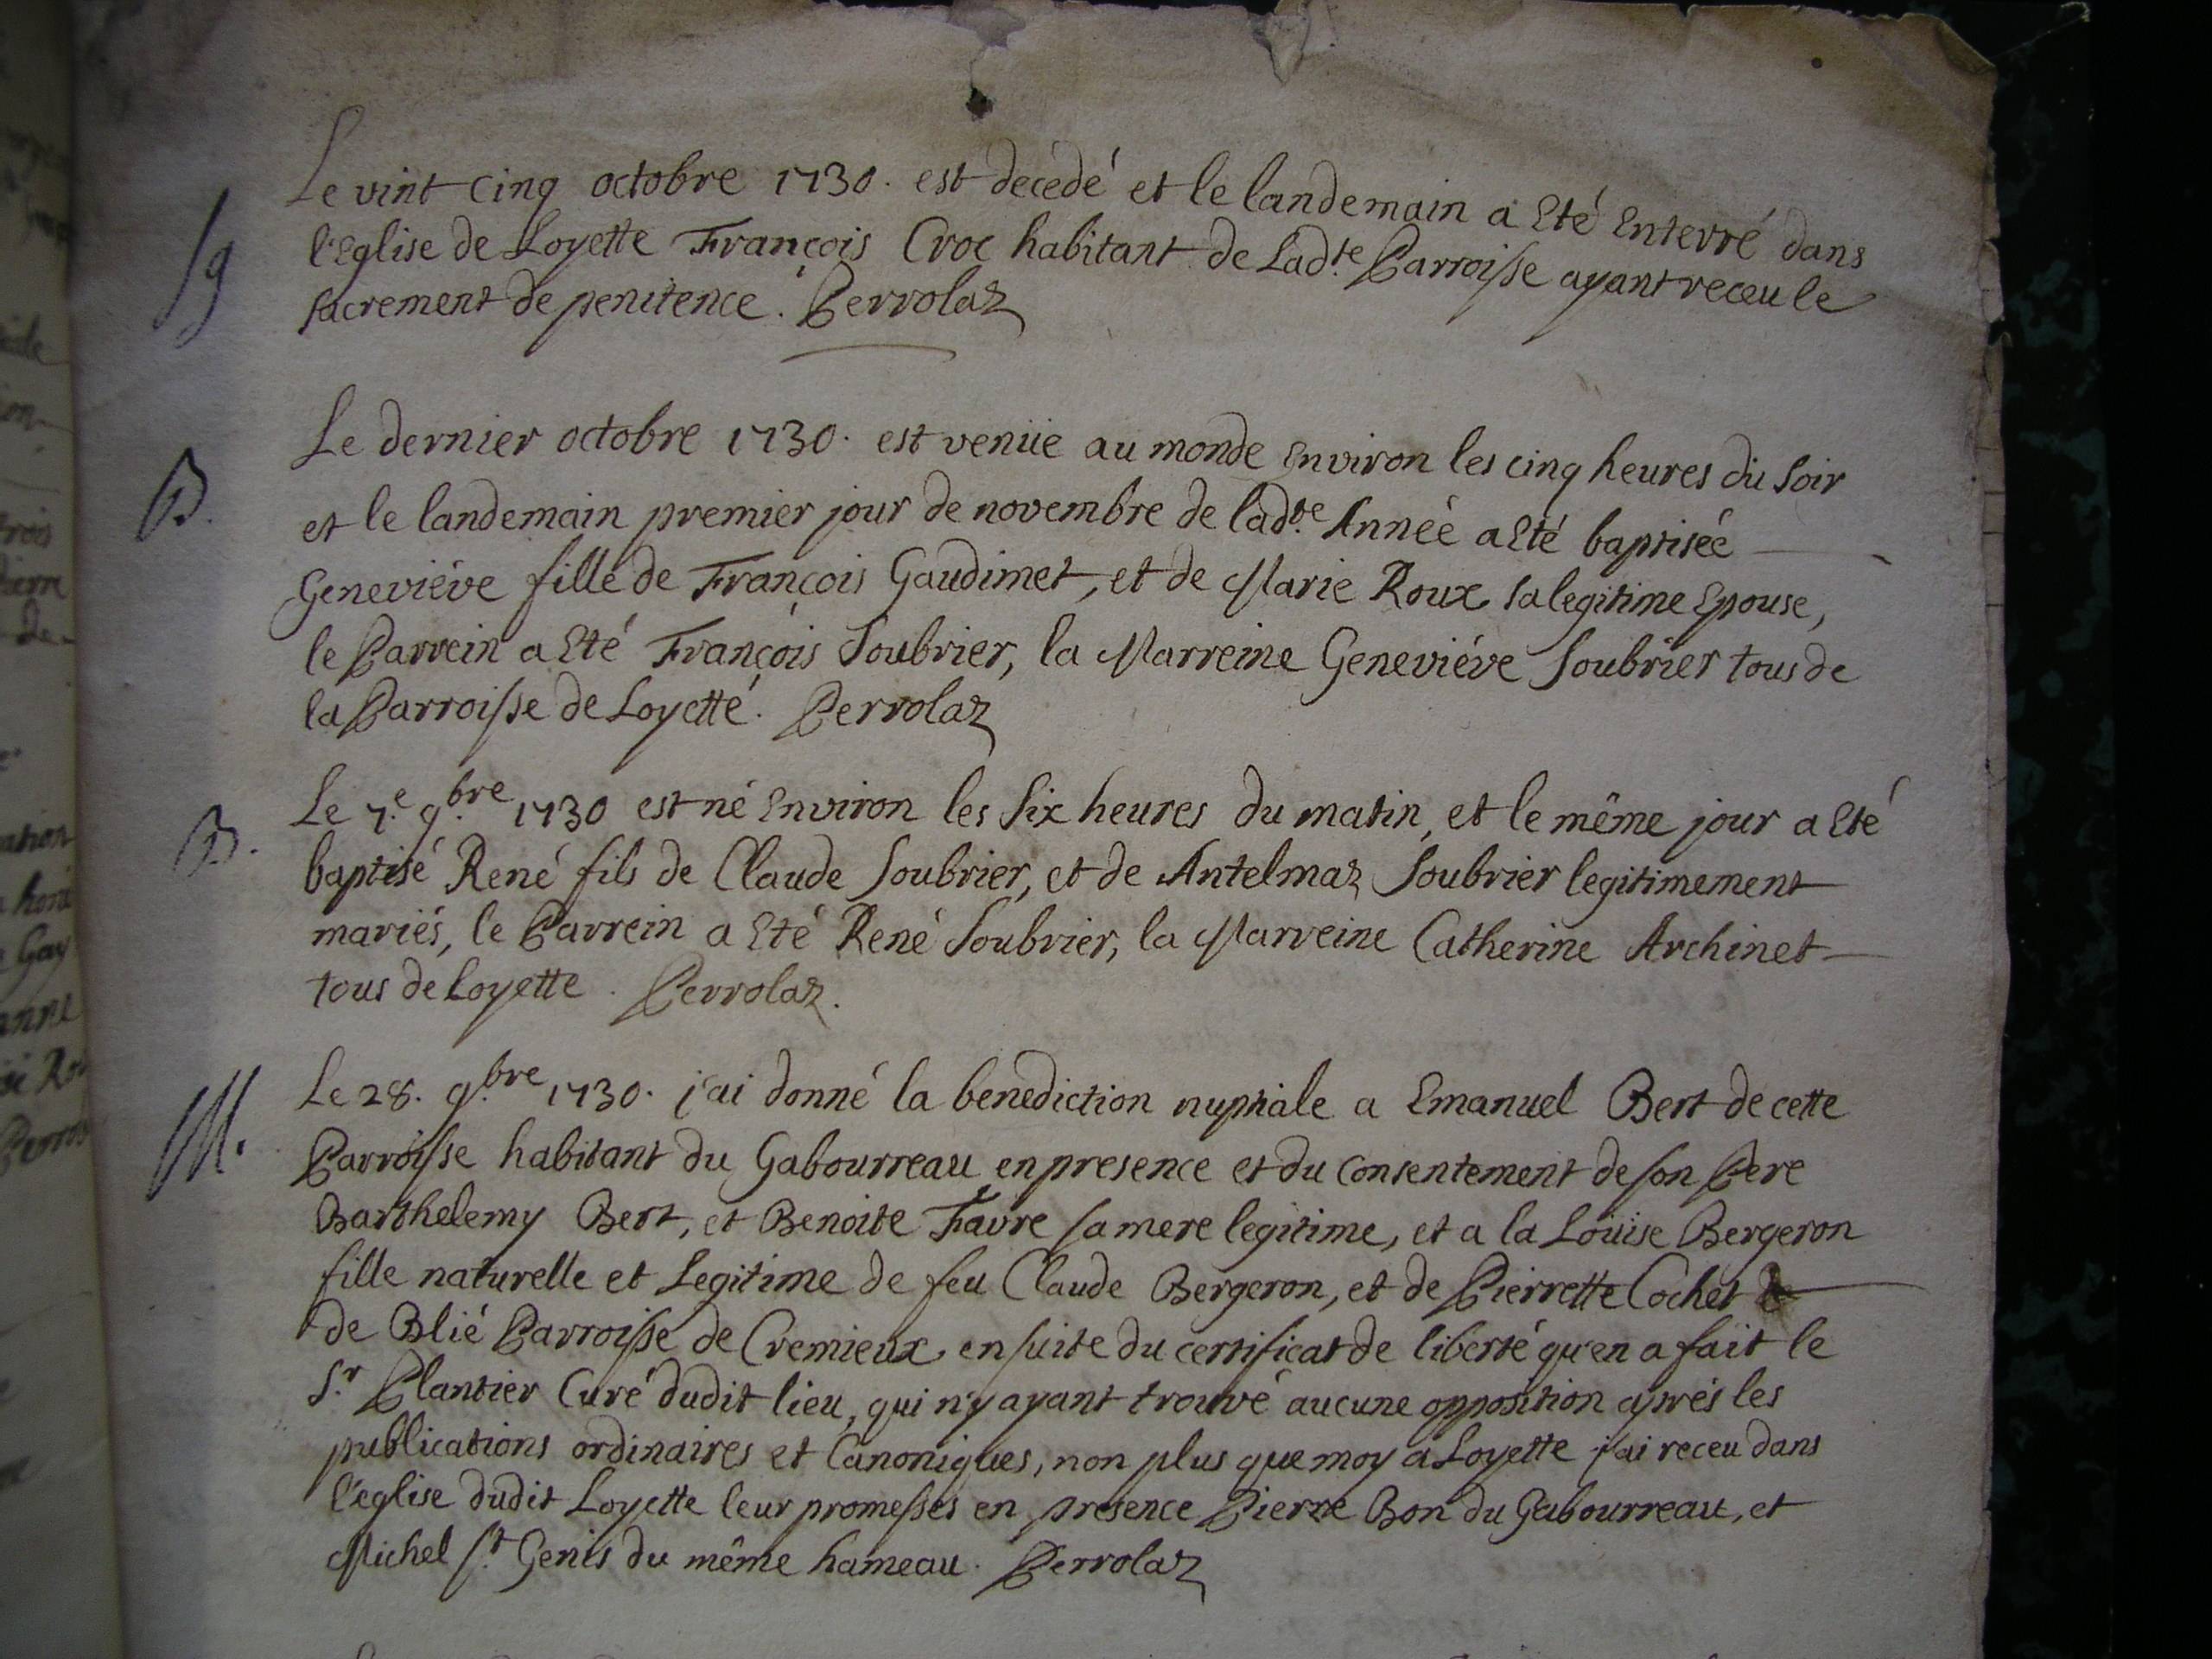 Le vint cinq octobre 1730. est decedé et le landemain a Eté Enterré dans
l'Eglise de Loyette François Croc habitant de Ladte Parroisse ayant receu le
sacrement de penitence. Perrolaz
B.
Le dernier octobre 1730. est venüe au monde Environ les cinq heures du soir
et le landemain premier jour de novembre de ladte Année a Eté baptisée
Geneviéve fille de François Gaudimet, et de Marie Roux sa legitime Epouse,
le Parrein a Eté François Soubrier, la Marreine Geneviéve Soubrier tous de
la Parroisse de Loyette. Perrolaz
B.
Le 7e. 9bre 1730 est né Environ les Six heures du matin, et le même jour a Eté
baptisé René fils de Claude Soubrier, et de Antelmaz Soubrier legitimement
mariés, le Parrein a Eté René Soubrier, la Marreine Catherine Archinet
tous de Loyette. Perrolaz.
M.
Le 28. 9bre 1730. j'ai donné la benediction nuptiale a Emanuel Bert de cette
Parroisse habitant du Gabourreau en presence et du consentement de son Pere
Barthelemy Bert, et Benoite Favre sa mere legitime, et a la Loüise Bergeron
fille naturelle et Legitime de feu Claude Bergeron, et de Pierrette Cochet
de Blié Parroisse de Cremieux ensuite du certificat de liberté qu'en a fait le
Sr. Plantier Curé dudit lieu, qui n'y ayant trouvé aucune opposition aprés les
publications ordinaires et Canoniques, non plus que moy a Loyette j'ai receu dans
l'eglise dudit Loyette leur promesses en presence Pierre Bon du Gabourreau, et
Michel St. Genis du même hameau. Perrolaz